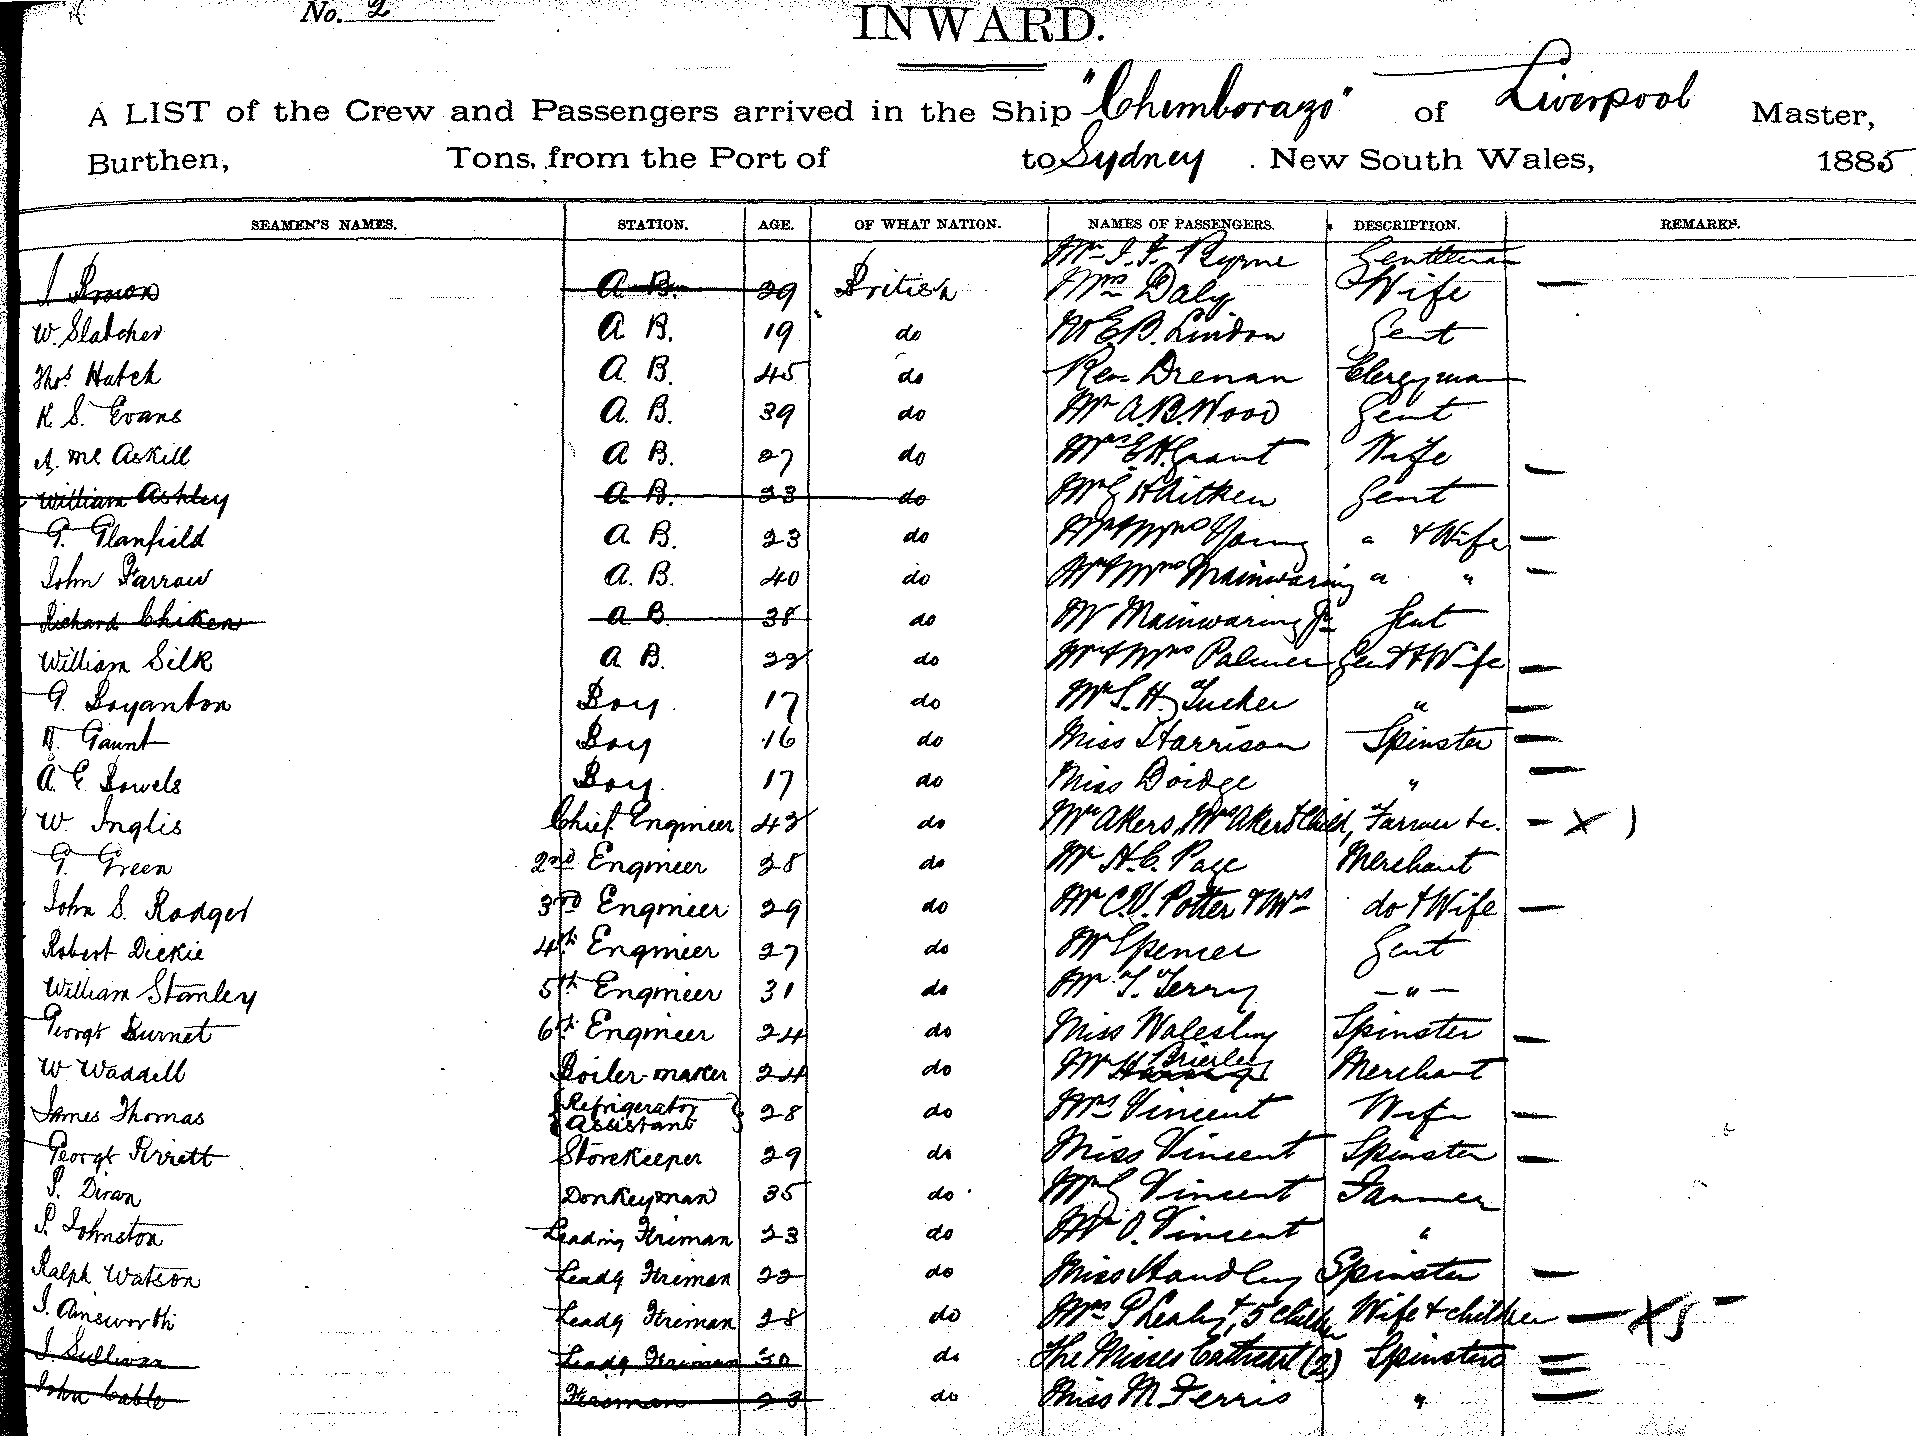 No. 2
INWARD.
A LIST of the Crew and Passengers arrived in the Ship "Chimborazo" of Liverpool Master,
Burthen, Tons, from the Port of to Sydney . New South Wales, 1885
SEAMEN'S NAMES. STATION. AGE. OF WHAT NATION. NAMES OF PASSENGERS. DESCRIPTION. REMARKS.
Mr J. F. Byrne Gentleman
J. Brown A. B. 29 British Mrs Daly Wife —
W. Slatcher A B. 19 do Mr E. B. Lindon Gent
Thos Hatch A. B. 45 do Rev Drenan Clergyman
R S. Evans A. B. 39 do Mr A. B. Wood Gent
A. McAskill A B. 27 do Mrs E. H. Grant Wife —
William Ashley A. B. 23 do Mr G H Aitken Gent
G. Glanfield A. B. 23 do Mr & Mrs Young " & Wife —
John Farrow A. B. 40 do Mr & Mrs Mainwaring " " —
Richard Chiken A B 38 do Mr Mainwaring Jr Gent
William Silk A B. 22 do Mr & Mrs Palmer Gent & Wife —
G. Boyanton Boy. 17 do Mr S. H. Tucker " —
Gaunt Boy 16 do Miss Harrison Spinster —
A. E. Bowels Boy. 17 do Miss Doidge " —
W. Inglis Chief Engineer 42 do Mr Akers, Mrs Akers & Child, Farmer &c. — X )
G. Green 2nd Engineer 28 do Mr H. C. Page Merchant
John S. Rodger 3rd Engineer 29 do Mr C. V. Potter & Mrs do & Wife —
Robert Dickie 4th Engineer 27 do Mr Spencer Gent
William Stanley 5th Engineer 31 do Mr T. Terry — " —
George Burnet 6th Engineer 24 do Miss Walesby Spinster —
W Waddell Boiler-maker 24 do Mr Brierley Merchant
James Thomas { Refrigerator Assistant } 28 do Mrs Vincent Wife —
George Perrett Storekeeper 29 do Miss Vincent Spinster —
P. Diran Donkeyman 35 do Mr G Vincent Farmer
P. Johnston Leading Fireman 23 do Mr O. Vincent "
Ralph Watson Leadg Fireman 22 do Miss Handley Spinster —
J. Ainsworth Leadg Fireman 28 do Mrs P Leahy & 5 Childn Wife & children — X 5 —
J. Sullivan Leadg Fireman 30 do The Misses Cathcart (2) Spinsters =
John Cable Fireman 23 do Miss M Ferris " —